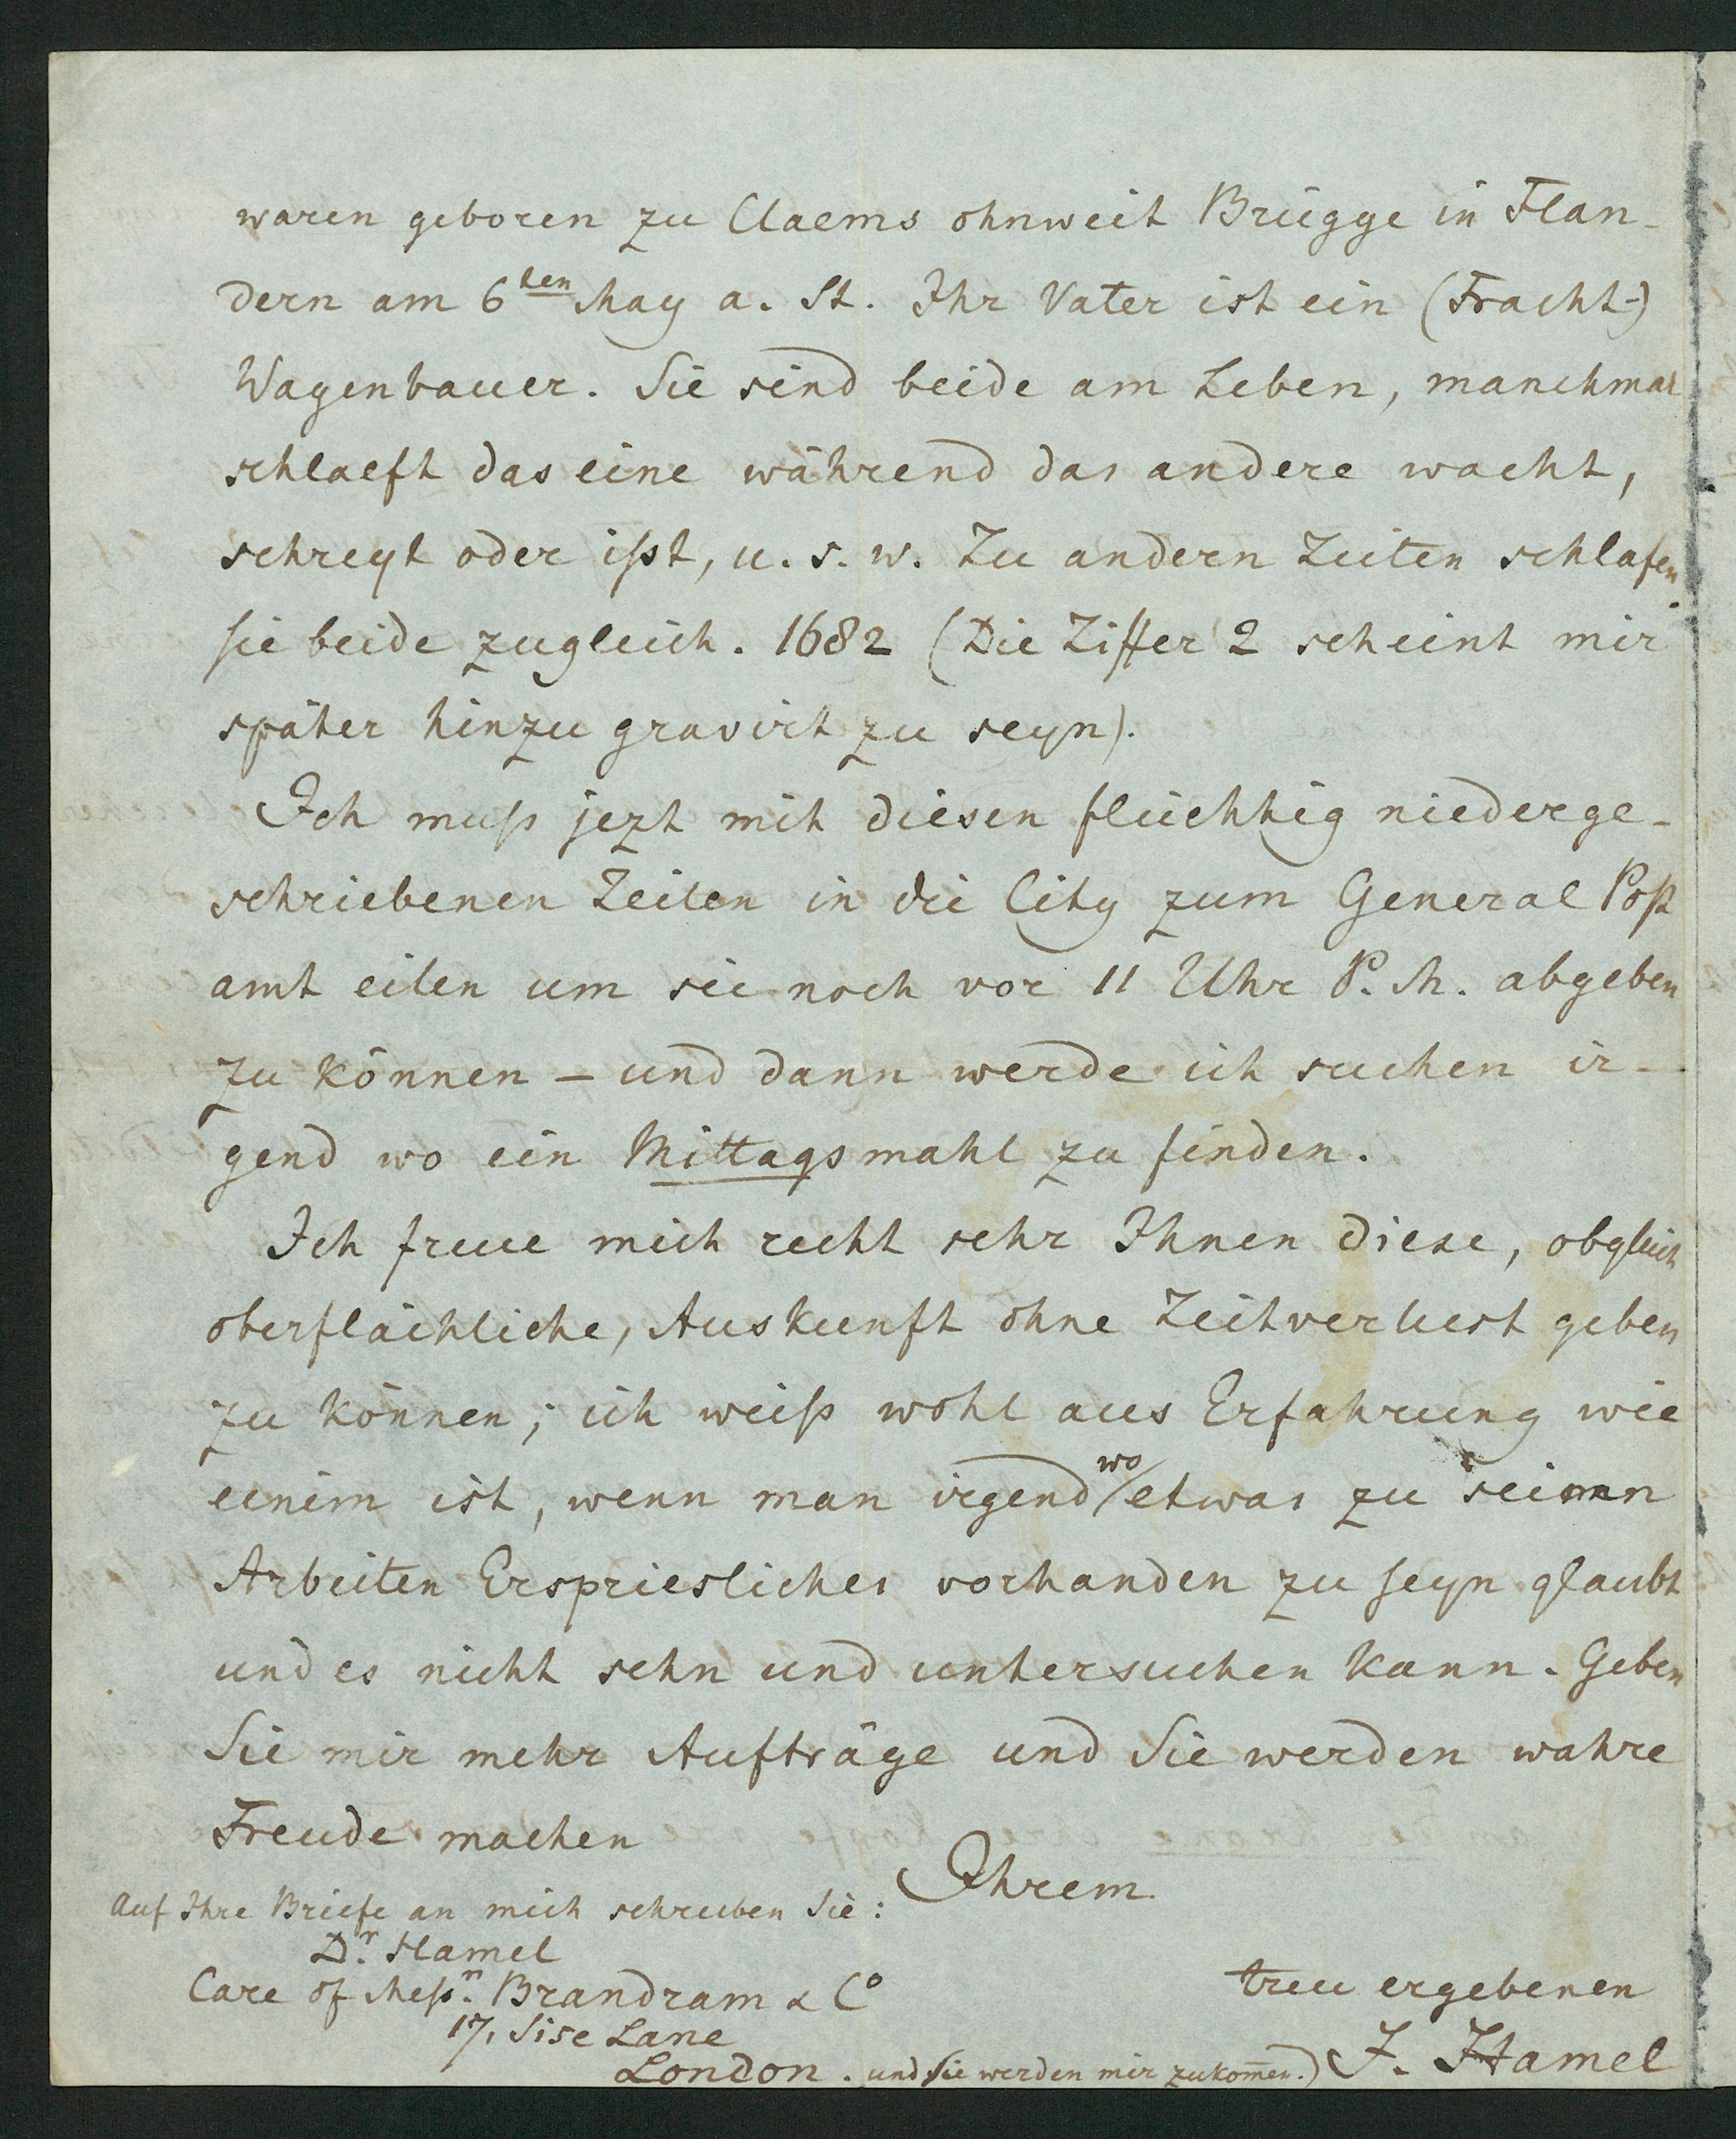 waren geboren zu Claems ohnweit Brügge in Flan-
dern am 6ten May a. St. Ihr Vater ist ein (Fracht-)
Wagenbauer. Sie sind beide am Leben, manchmal
schlaeft das eine während das andere wacht,
schreyt oder ißt, u. s. w. Zu andern Zeiten schlafen
sie beide zugleich. 1682 (Die Ziffer 2 scheint mir
später hinzu gravirt zu seyn).
Ich muß jezt mit diesen flüchtig niederge-
schriebenen Zeilen in die City zum General Post
amt eilen um sie noch vor 11 Uhr P. M. abgeben
zu können – und dann werde ich suchen ir-
gend wo ein Mittagsmahl zu finden.
Ich freue mich recht sehr Ihnen diese, obgleich
oberflächliche, Auskunft ohne Zeitverlust geben
zu können; ich weiß wohl aus Erfahrung wie
einem ist, wenn man irgend wo etwas zu seinen
Arbeiten Erspriesliches vorhanden zu seyn glaubt
und es nicht sehn und untersuchen kann. Geben
Sie mir mehr Aufträge und Sie werden wahre
Freude machen
Ihrem
treu ergebenen
J. Hamel
Auf Ihre Briefe an mich schreiben Sie:
Dr. Hamel
Care of Messrs. Brandram & Co
17, Sise Lane
London. und sie werden mir zukom̄en.)